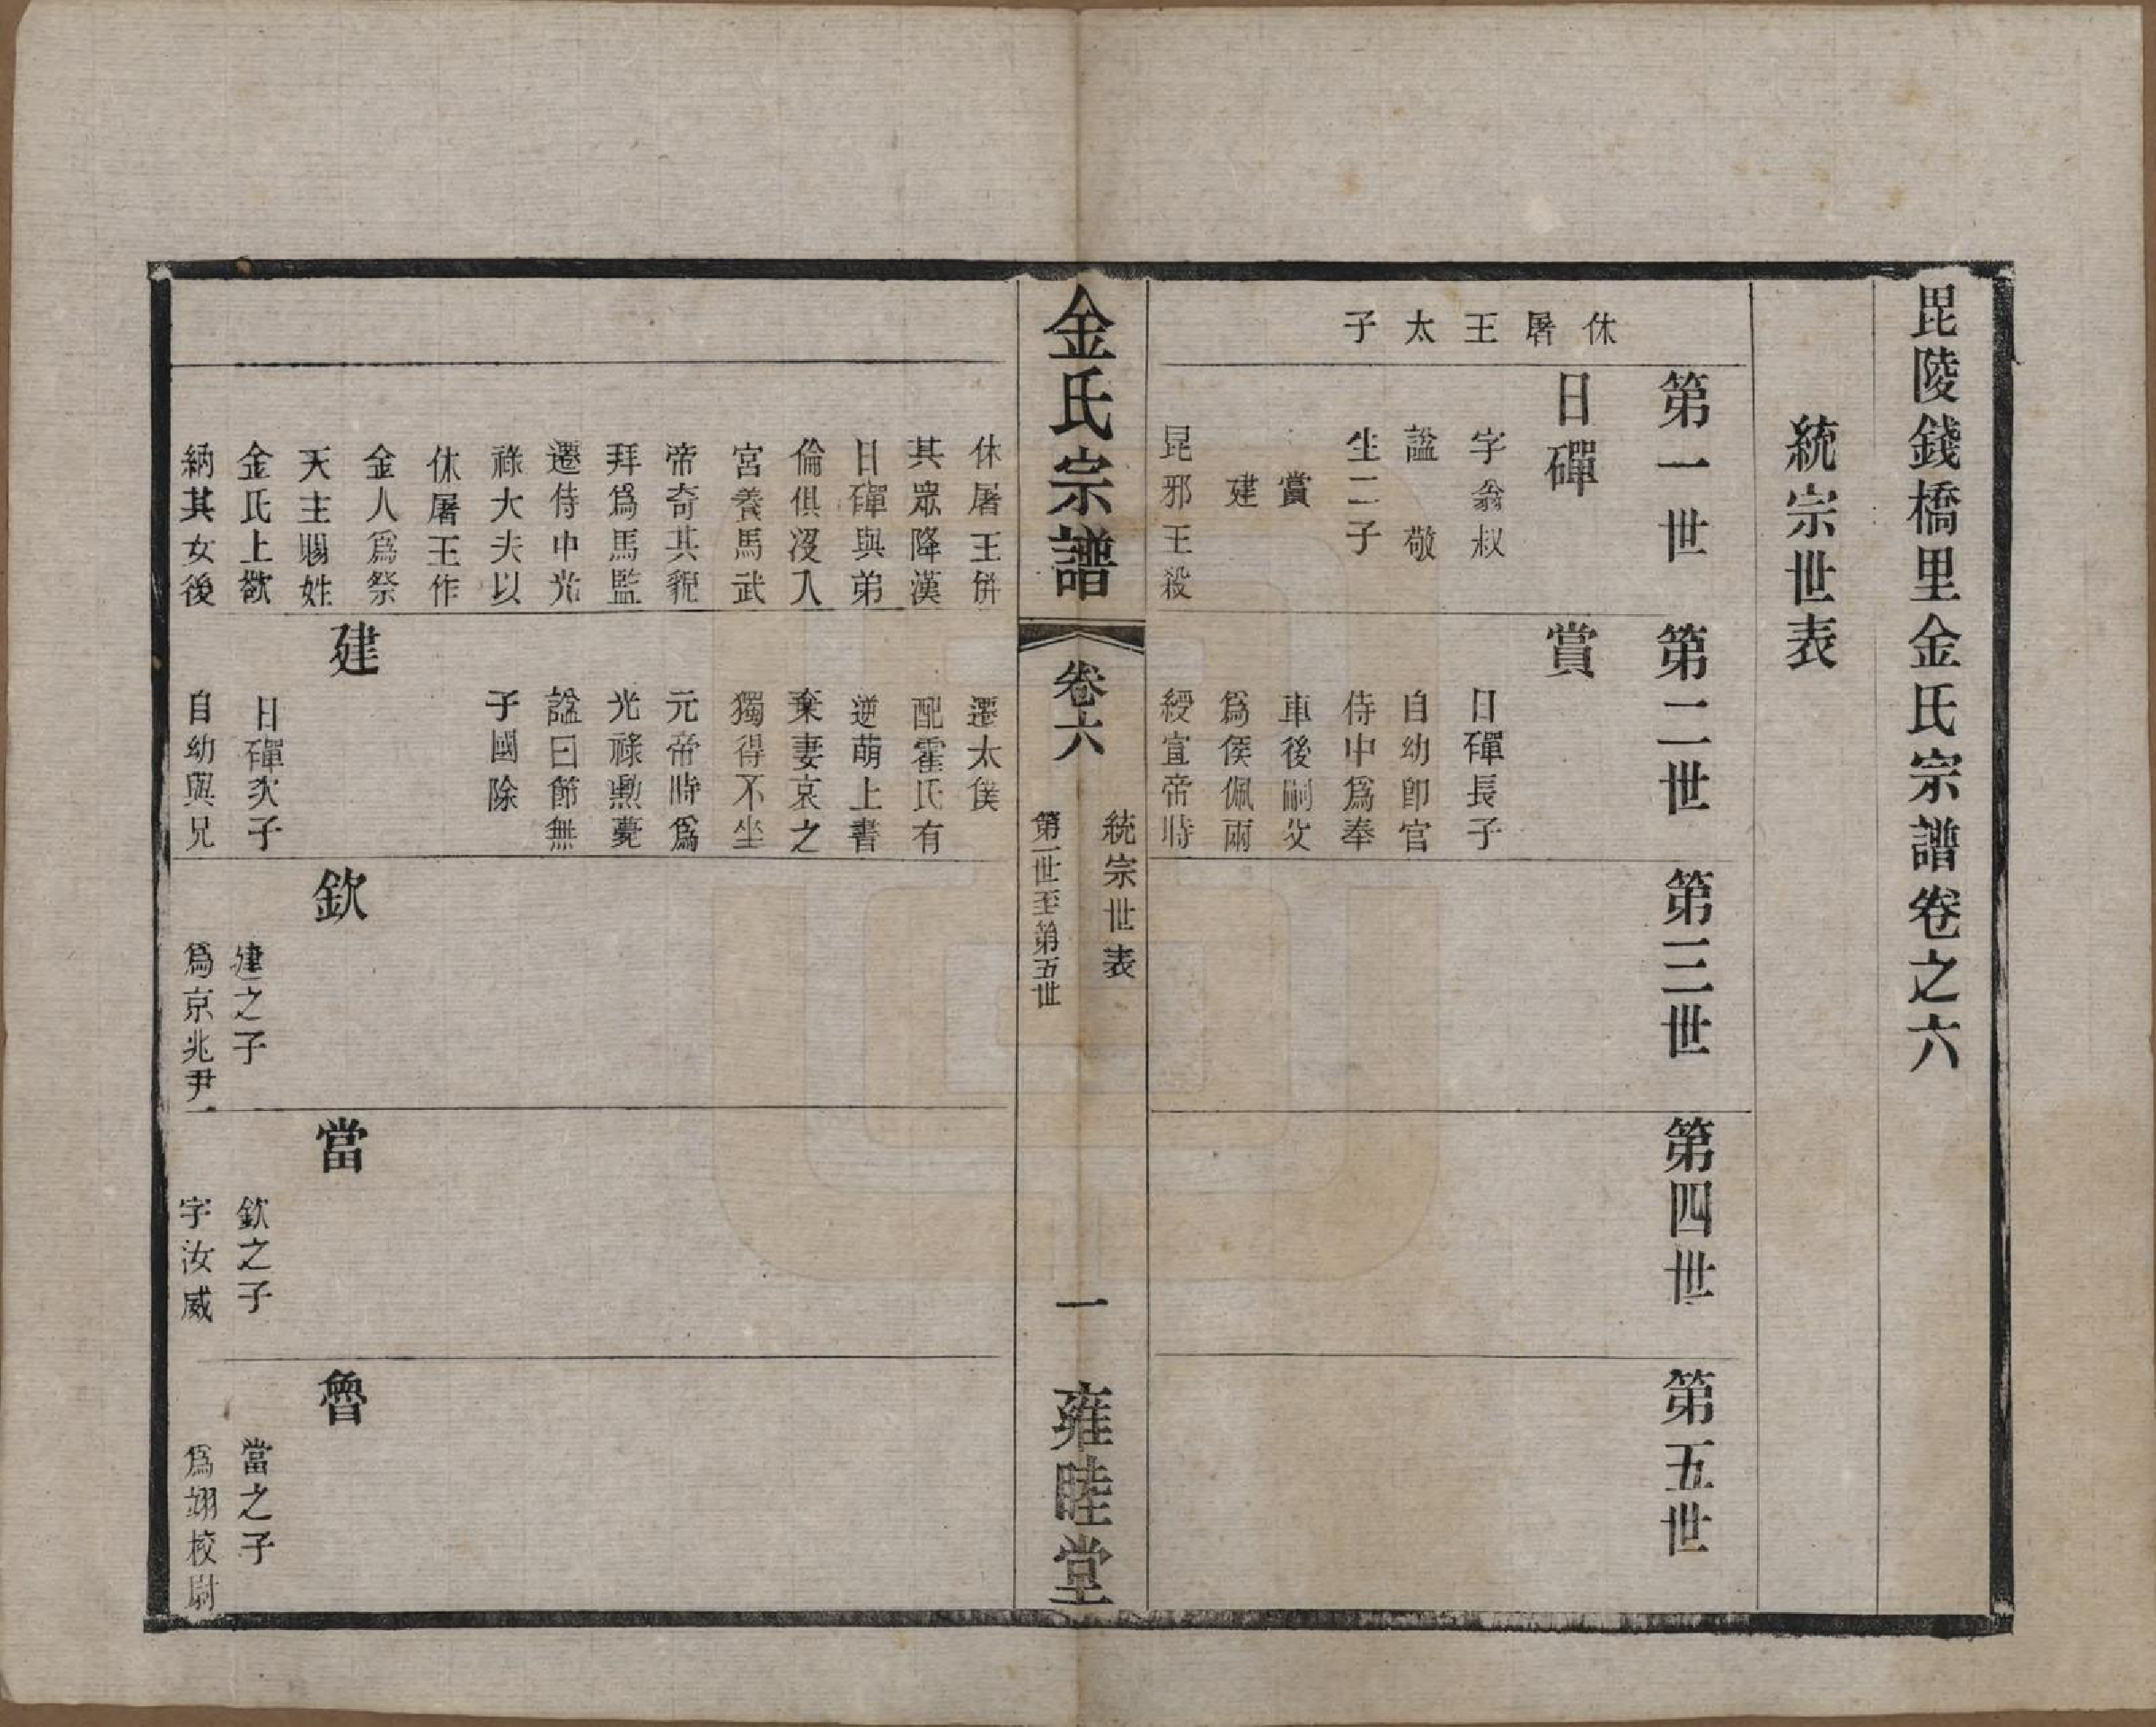 毘陵錢橋里金氏宗譜卷之六
統宗世表
第一世
第二世
第三世
第四世
第五世
休屠王太子
日磾
字翁叔
諡敬
生二子
賞
建
昆邪王殺
賞
日磾長子
自幼卽官
侍中爲奉
車後嗣父
爲侯佩兩
綬宣帝時
金氏宗譜
卷六
統宗世表
第一世至第五世
一
雍睦堂
休屠王併
其眾降漢
日磾與弟
倫俱沒入
宮養馬武
帝奇其貌
拜爲馬監
遷侍中光
祿大夫以
休屠王作
金人爲祭
天主賜姓
金氏上欲
納其女後
遷太僕
配霍氏有
逆萌上書
棄妻哀之
獨得不坐
元帝時爲
光祿勳薨
諡曰節無
子國除
建
日磾次子
自幼與兄
欽
建之子
爲京兆尹
當
欽之子
字汝威
魯
當之子
爲翊校尉